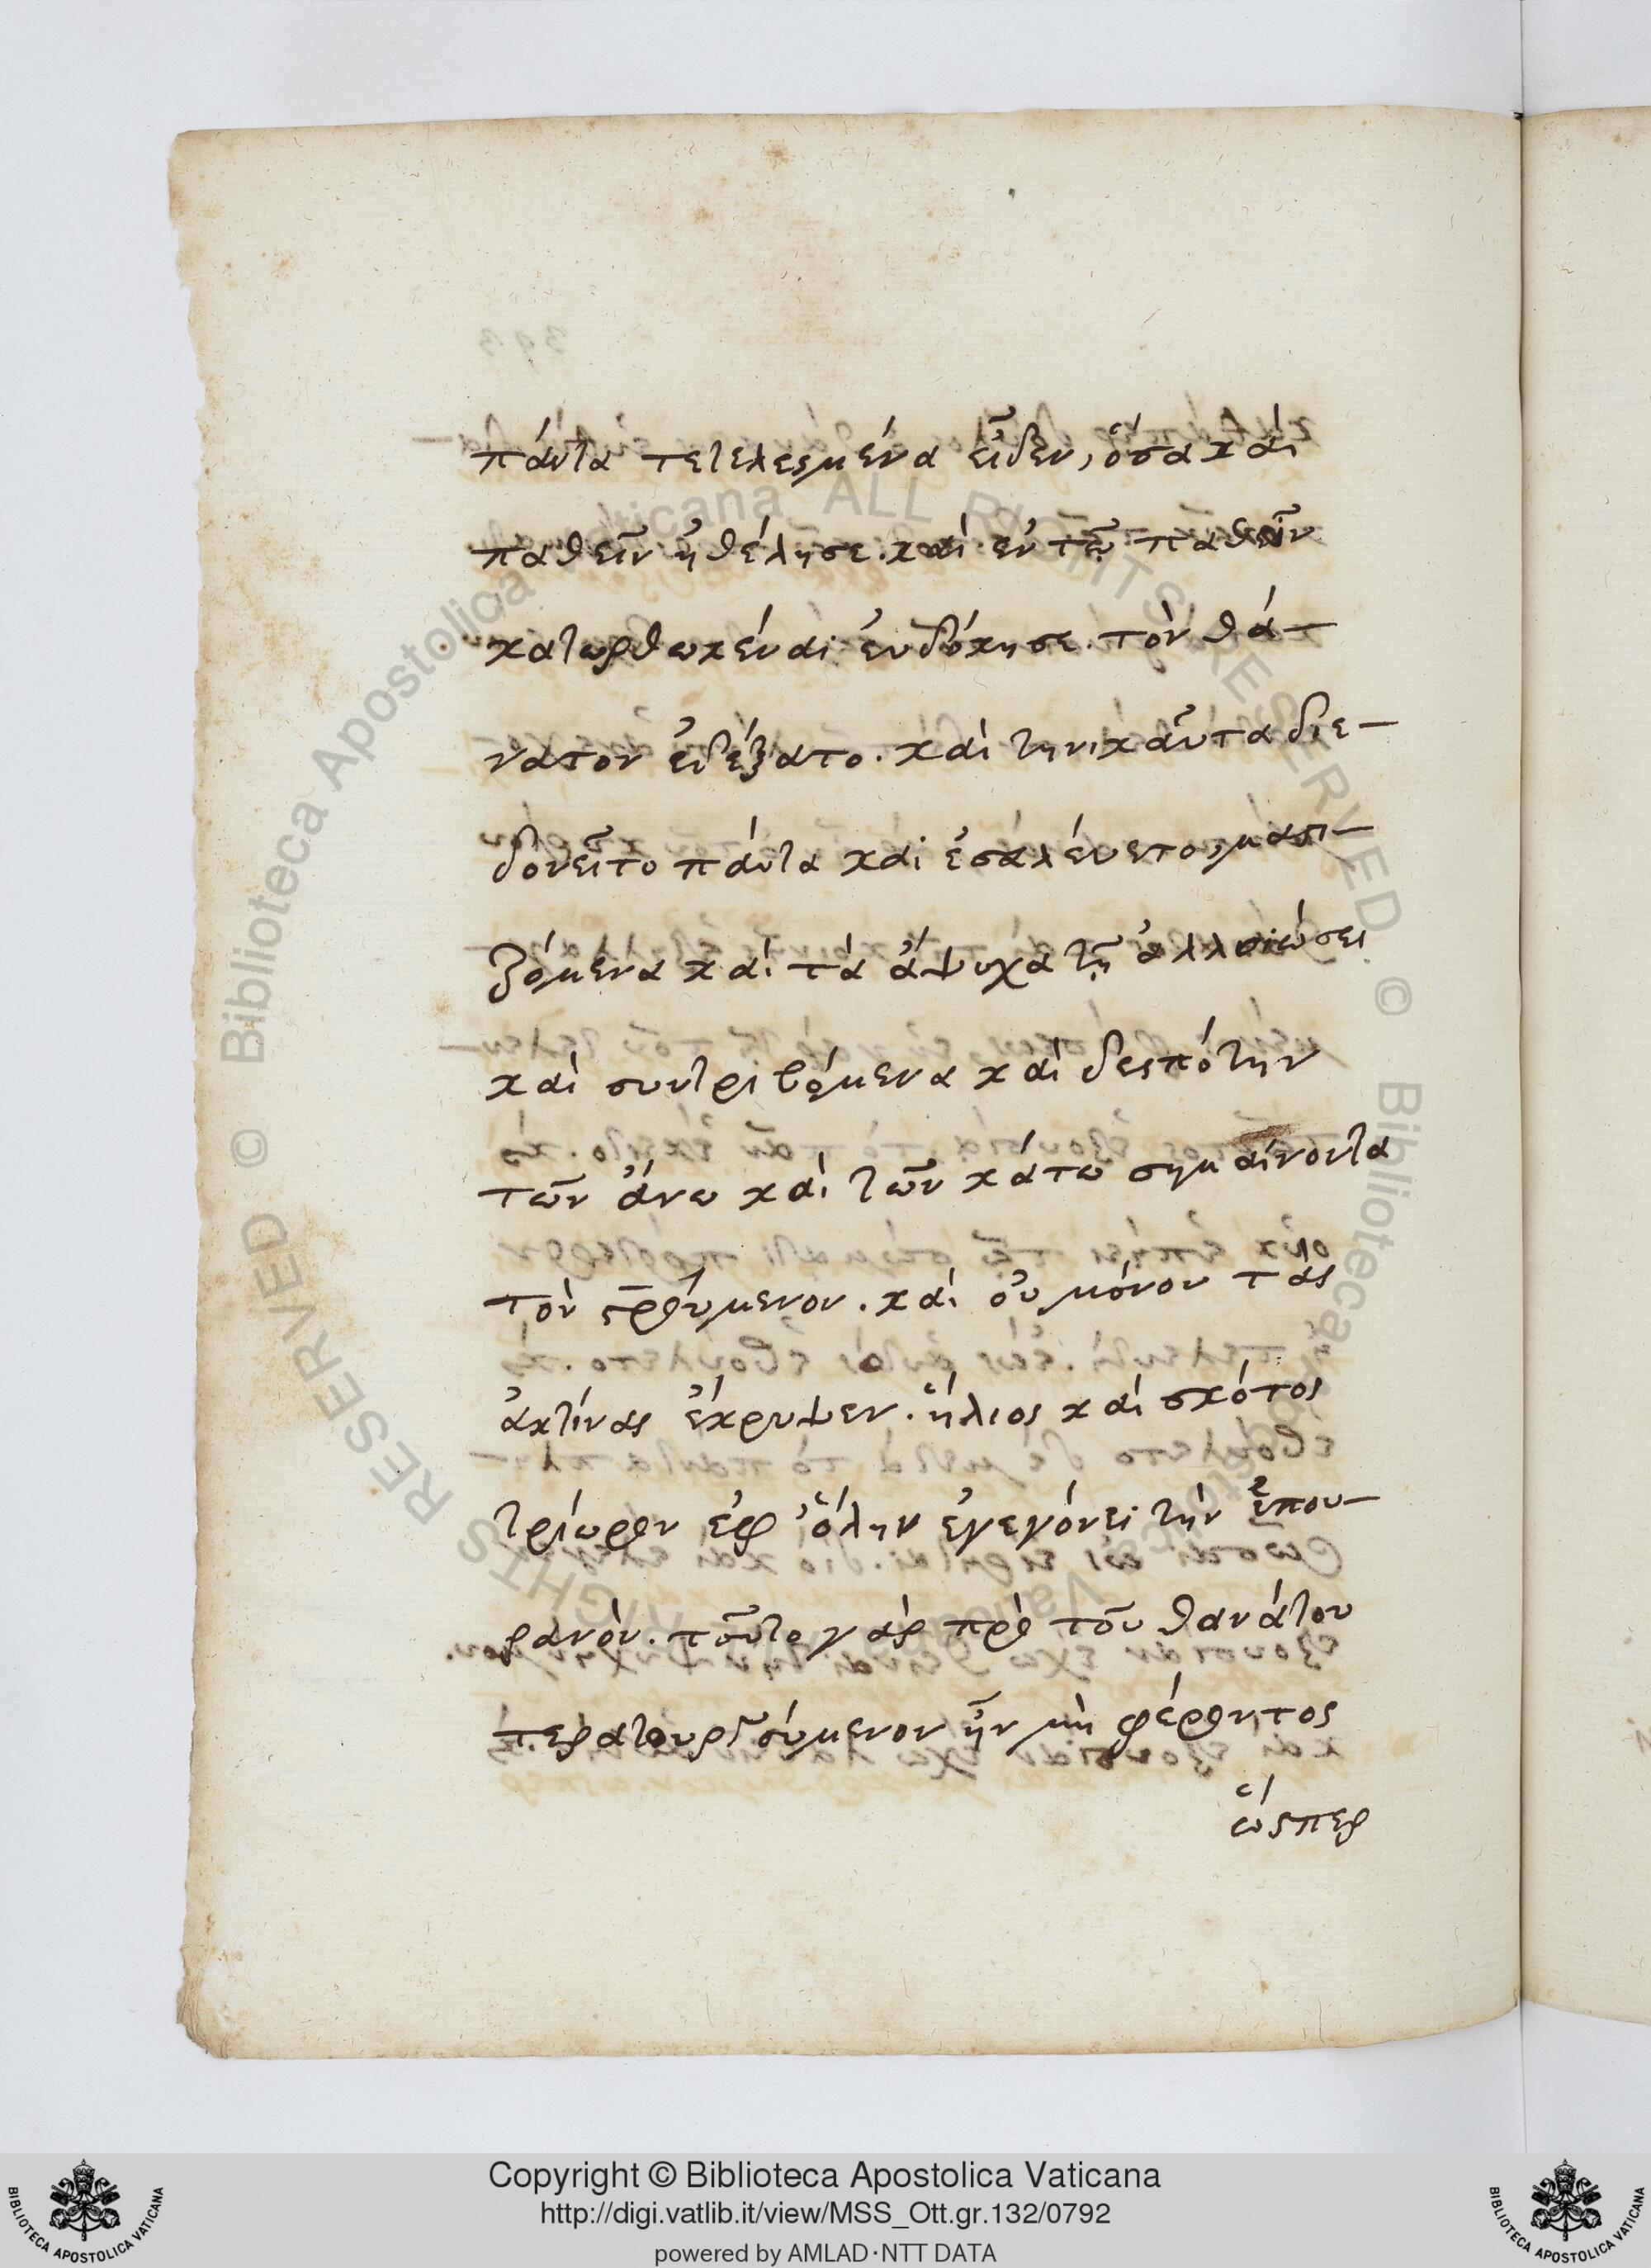 πάντα τετελεσμένα εἶδεν, ὅσα καὶ
παθεῖν ἠθέλησε. καὶ ἐν τῷ παθεῖν
κατωρθωκέναι ἐυδόκησε. τὸν θά-
νατον ἐδέξατο. καὶ τηνικαῦτα διε-
δονεῖτο πάντα καὶ ἐσαλέυετο, μαστι-
ζόμενα καὶ τὰ ἄψυχα τῇ ἀλλοιώσει
καὶ συντριβόμενα καὶ δεσπότην
τῶν ἄνω καὶ τῶν κάτω σημαίνοντα
τὸν σρούμενον. καὶ οὐ μόνον τὰς
ἀκτίνας ἔκρυψεν. ἥλιος καὶ σκότος
τρίωρον ἐφ ὅλην ἐγεγόνει τὴν ὑπου-
ρανόν. τοῦτο γὰρ πρὸ τοῦ θανάτου
τερατουργούμενον ἦν μὴ φέροντος
ὥσπερ
Copyright © Biblioteca Apostolica Vaticana
http://digi.vatlib.it/view/MSS_Ott.gr.132/0792
powered by AMLAD·NTT DATA
BIBLIOTECA APOSTOLICA VATICANA
BIBLIOTECA APOSTOLICA VATICANA